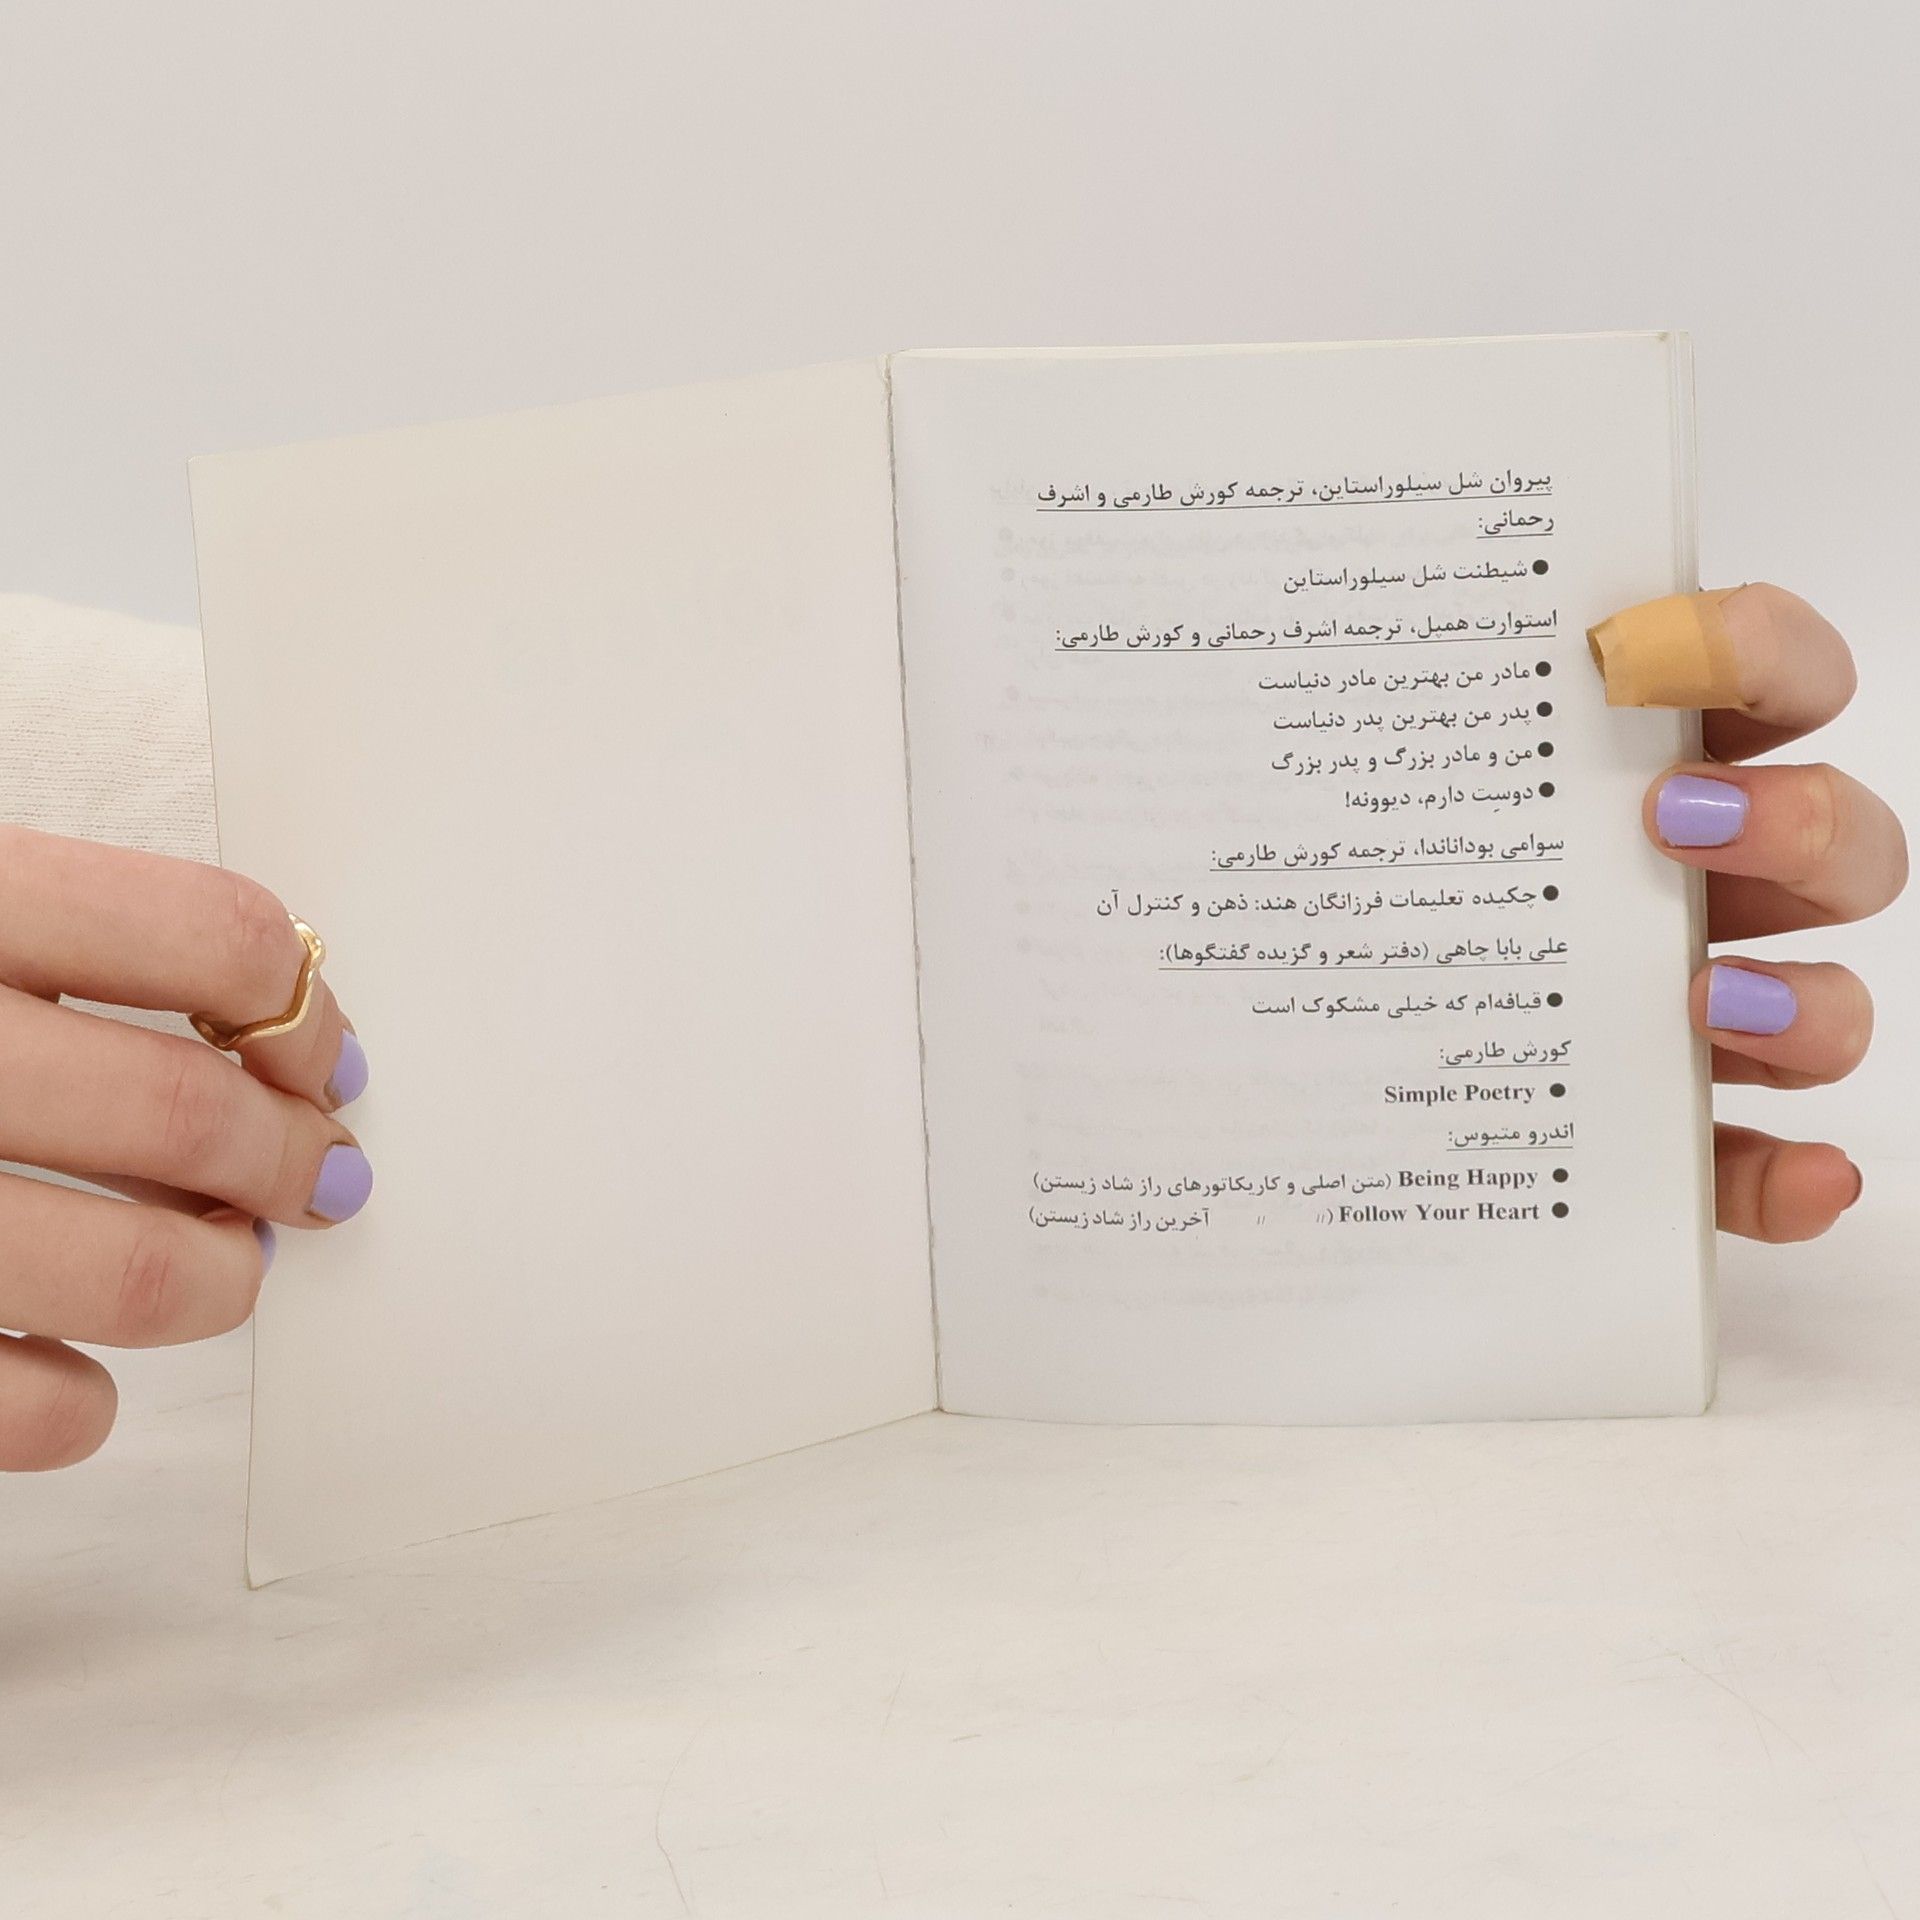 پیروان شل سیلوراستاین، ترجمه کورش طارمی و اشرف
رحمانی:
● شیطنت شل سیلوراستاین
استوارت همپل، ترجمه اشرف رحمانی و کورش طارمی:
● مادر من بهترین مادر دنیاست
● پدر من بهترین پدر دنیاست
● من و مادر بزرگ و پدر بزرگ
● دوسِت دارم، دیوونه!
سوامی بوداناندا، ترجمه کورش طارمی:
● چکیده تعلیمات فرزانگان هند: ذهن و کنترل آن
علی بابا چاهی (دفتر شعر و گزیده گفتگوها):
● قیافه‌ام که خیلی مشکوک است
کورش طارمی:
● Simple Poetry
اندرو متیوس:
● Being Happy (متن اصلی و کاریکاتورهای راز شاد زیستن)
● Follow Your Heart (〃 〃 آخرین راز شاد زیستن)